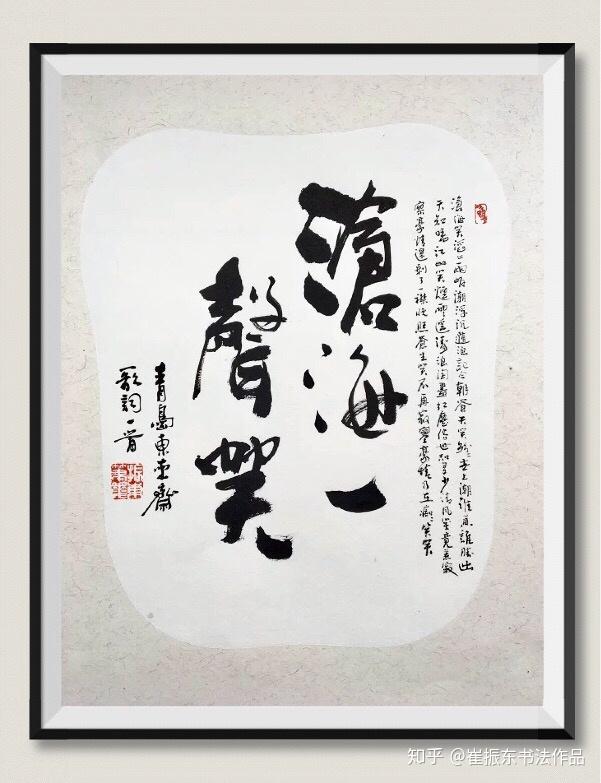 滄海笑滔〻兩岸潮浮沉隨浪記今朝蒼天笑紛〻世上潮誰負誰勝出
天知曉江山笑煙雨遙濤浪淘盡紅塵俗世知多少清風笑竟惹寂
寥豪情還剩了一襟晚照蒼生笑不再寂寥豪情仍在癡〻笑笑
滄海一
聲笑
歌詞一首
青島東齋
知乎 @崔振东书法作品